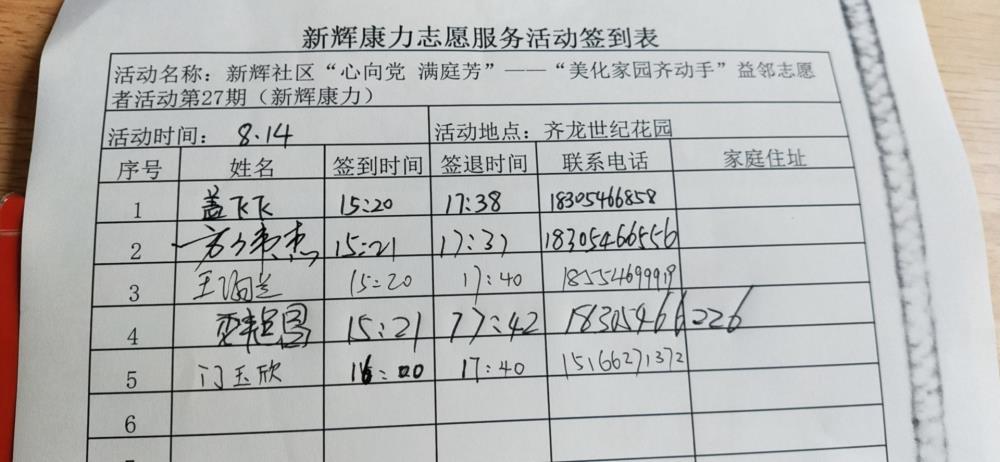 新辉康力志愿服务活动签到表
活动名称：新辉社区“心向党 满庭芳”——“美化家园齐动手”益邻志愿
者活动第27期（新辉康力）
活动时间： 8.14 活动地点：齐龙世纪花园
序号 姓名 签到时间 签退时间 联系电话 家庭住址
1 盖飞飞 15:20 17:38 18305466858
2 15:21 17:37 18305466556
3 王 15:20 17:40 18554699919
4 15:21 17:42 18305466226
5 门玉欣 17:40 15166271372
6